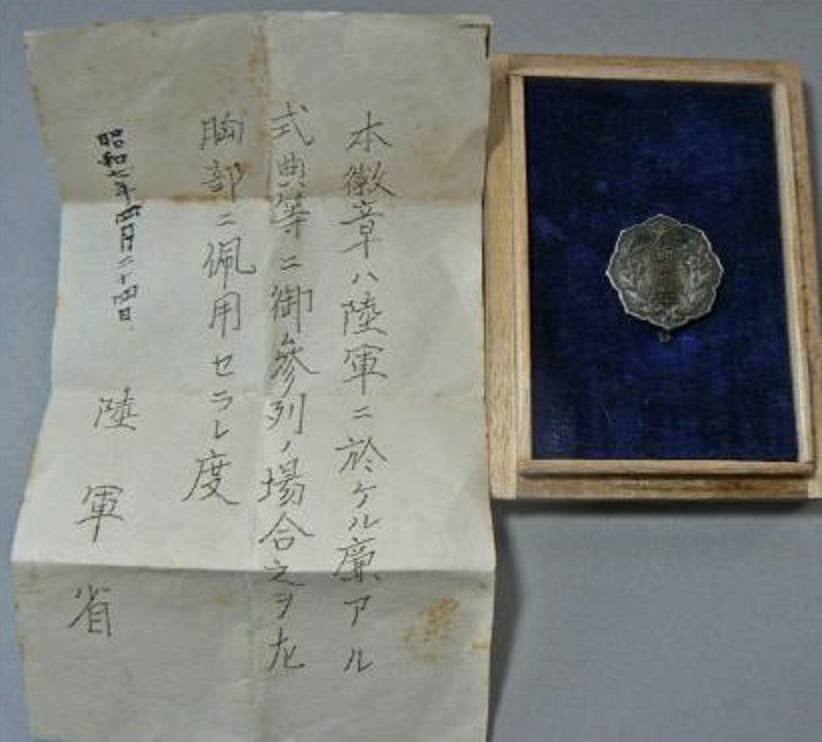 本徽章ハ陸軍ニ於ケル廉アル
式典等ニ御參列ノ場合之ヲ左
胸部ニ佩用セラレ度
昭和七年四月二十四日
陸軍省